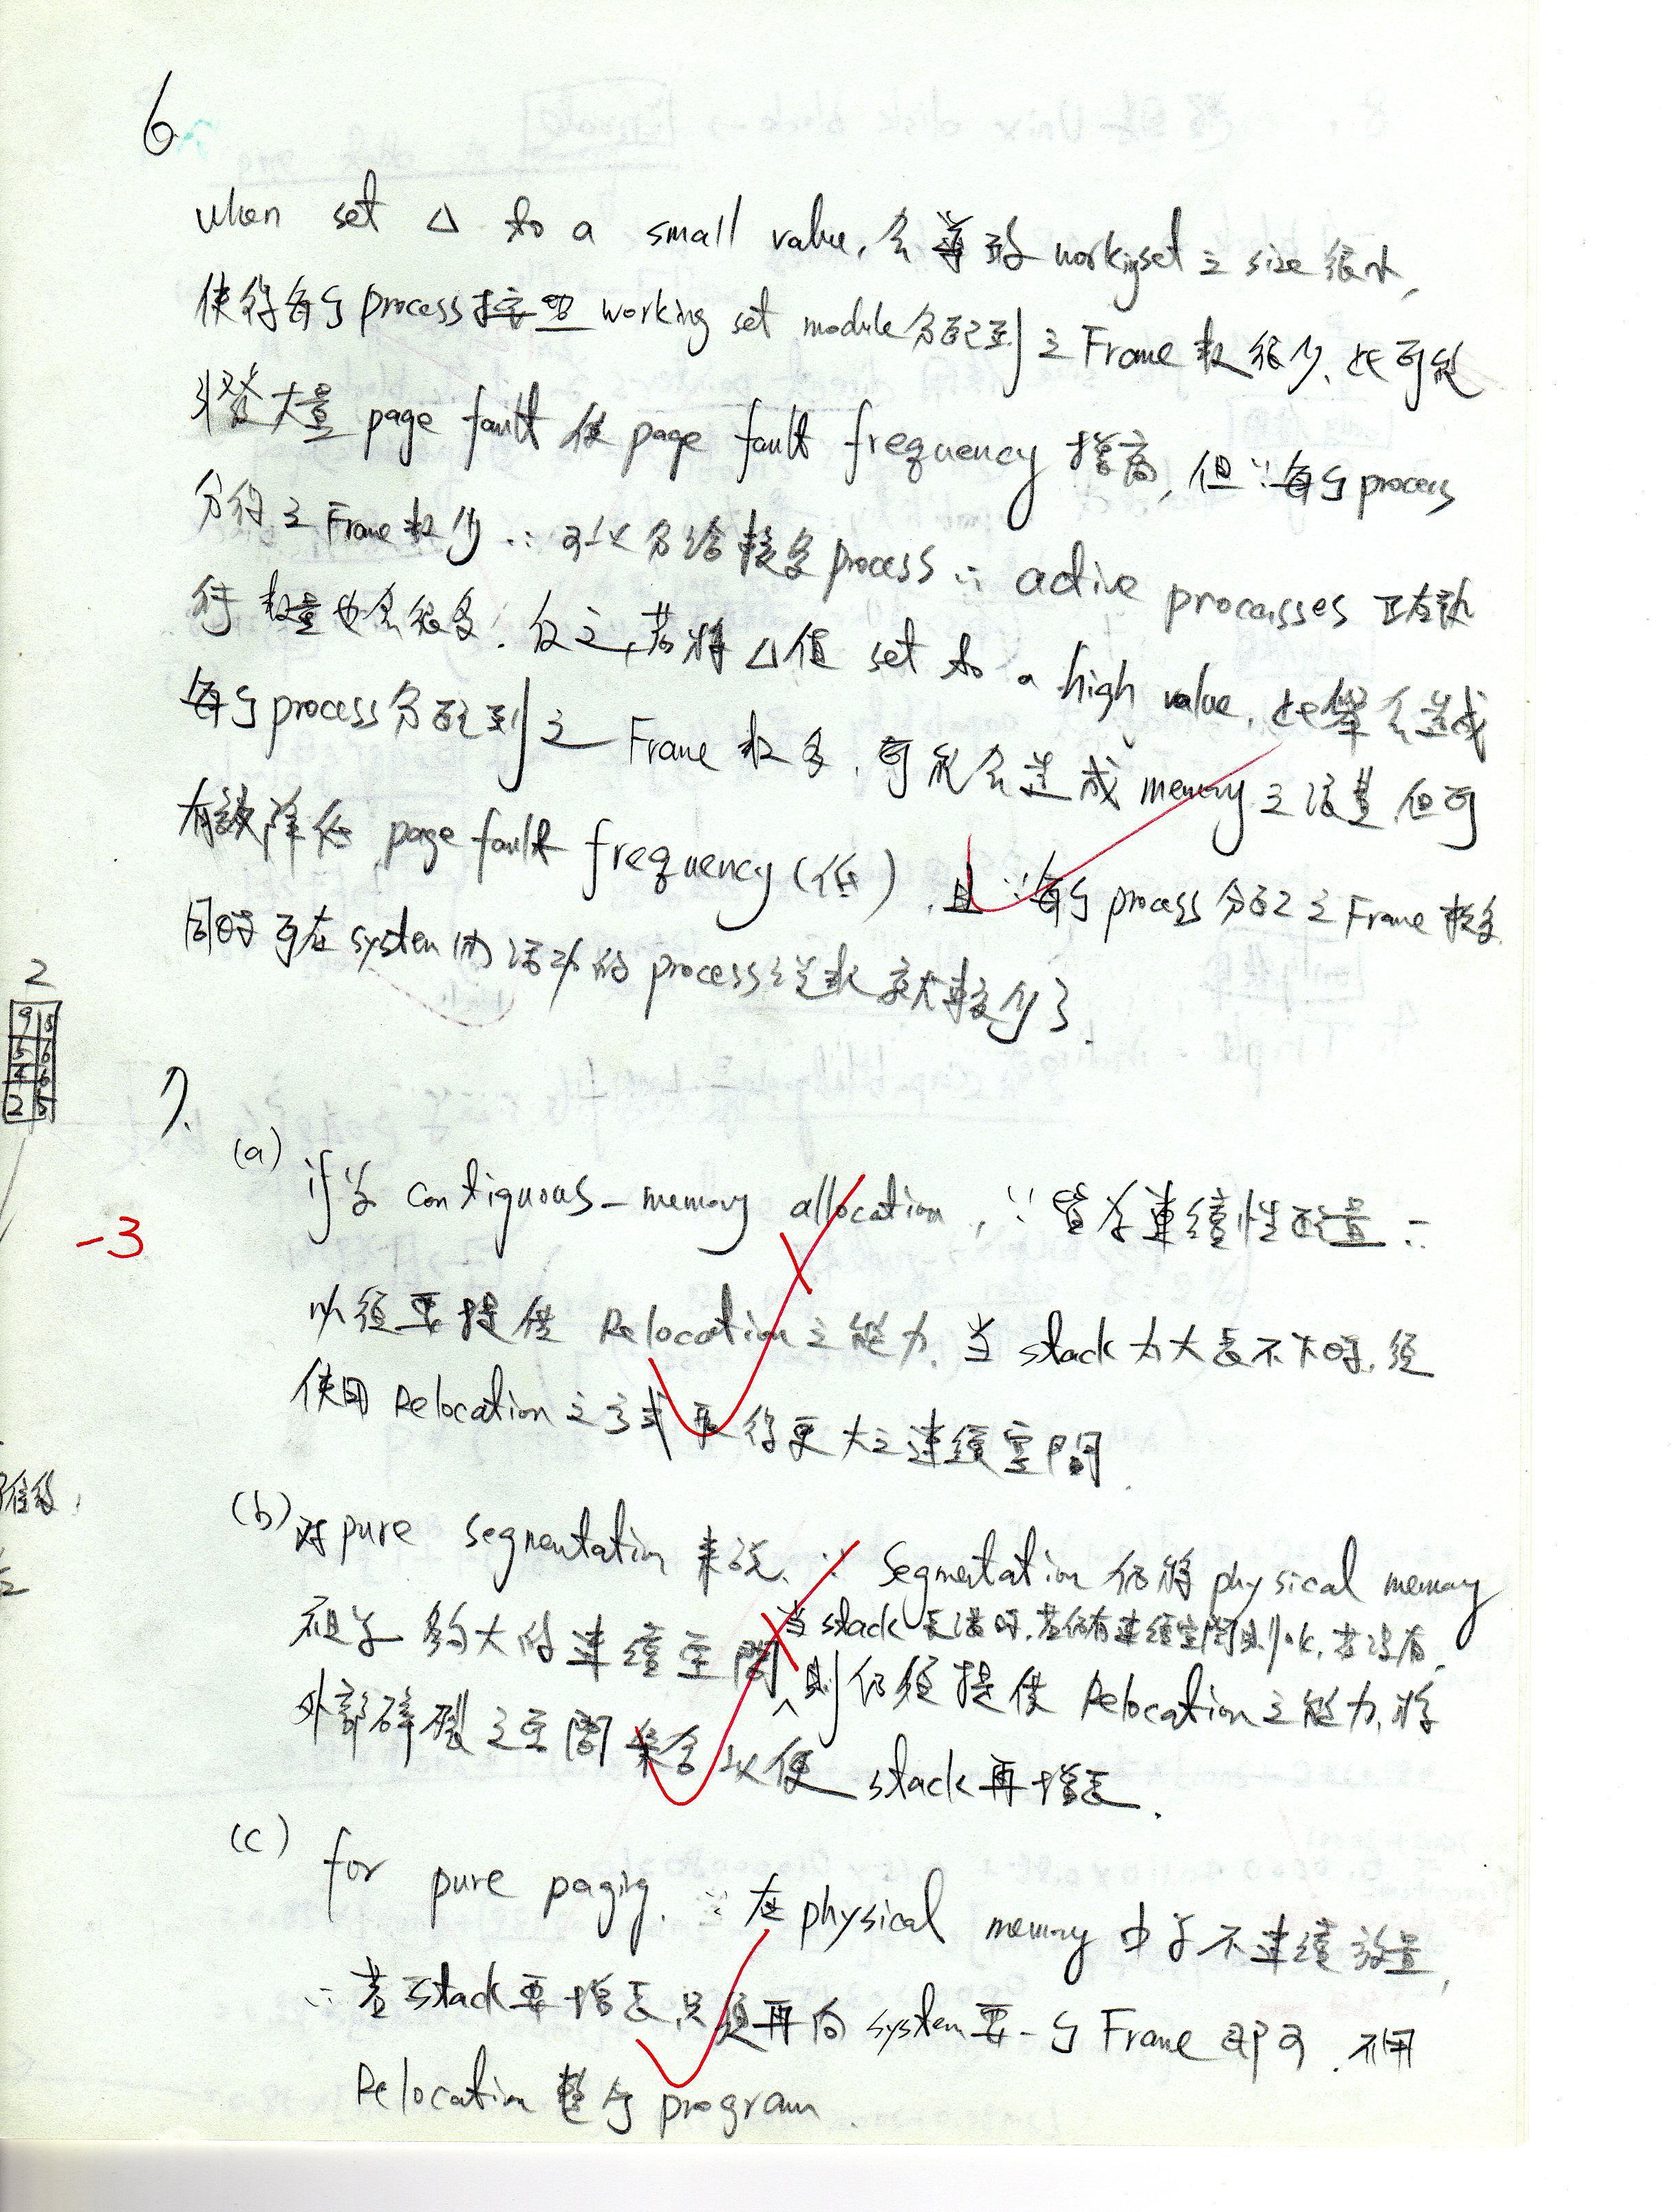 6
when set △ to a small value, 會導致 working set 之 size 很小,
使得每个 process 按照 working set module 分配到之 Frame 數很少, 此可能
引發大量 page fault 使 page fault frequency 增高, 但∵每个 process
分得之 Frame 數少 ∴可以分給較多 process ∴ active processes 正在執
行數量也會很多. 反之, 若將 △值 set to a high value, 此舉會造成
每个 process 分配到之 Frame 數多, 可能會造成 memory 之浪費但可
有效降低 page fault frequency (低), 且∵每个 process 分配之 Frame 較多
同時可在 system 內活動的 process 之數就較少了.
2
9 5
5 6
4 6
2 5
7.
(a) if 為 contiguous-memory allocation, ∵ 為連續性配置 ∴
-3
所須要提供 Relocation 之能力, 当 stack 太大長不下時, 須
使用 Relocation 之方式取得更大之連續空間.
(b) 対 pure segmentation 來說, ∵ Segmentation 仍將 physical memory
視為夠大的連續空間 当 stack 長滿時, 若仍有連續空間則 ok, 若沒有,
則仍須提供 Relocation 之能力, 將
外部碎裂之空間集合以便 stack 再增長.
(c) for pure paging, ∵ 在 physical memory 中為不連續放置,
∴ 若 stack 要增長, 只須再向 system 要一个 Frame 即可, 不用
Relocation 整个 program.